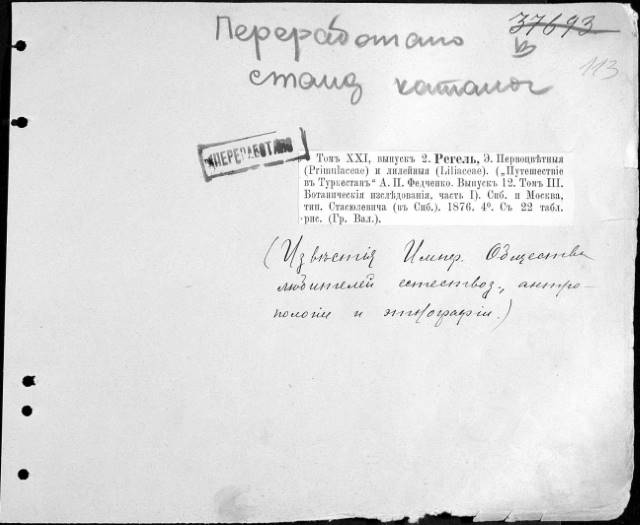 Переработано
37693
в
113
станд каталог
ПЕРЕРАБОТАНО
Томъ XXI, выпускъ 2. Регель, Э. Первоцвѣтныя
(Primulaceae) и лилейныя (Liliaceae). („Путешествіе
въ Туркестанъ“ А. П. Федченко. Выпускъ 12. Томъ III.
Ботаническія изслѣдованія, часть I). Спб. и Москва,
тип. Стасюлевича (въ Спб.). 1876. 4°. Съ 22 табл.
рис. (Гр. Вал.).
(Извѣстія Импер. Общества
любителей естествоз., антро-
пологіи и этнографіи.)